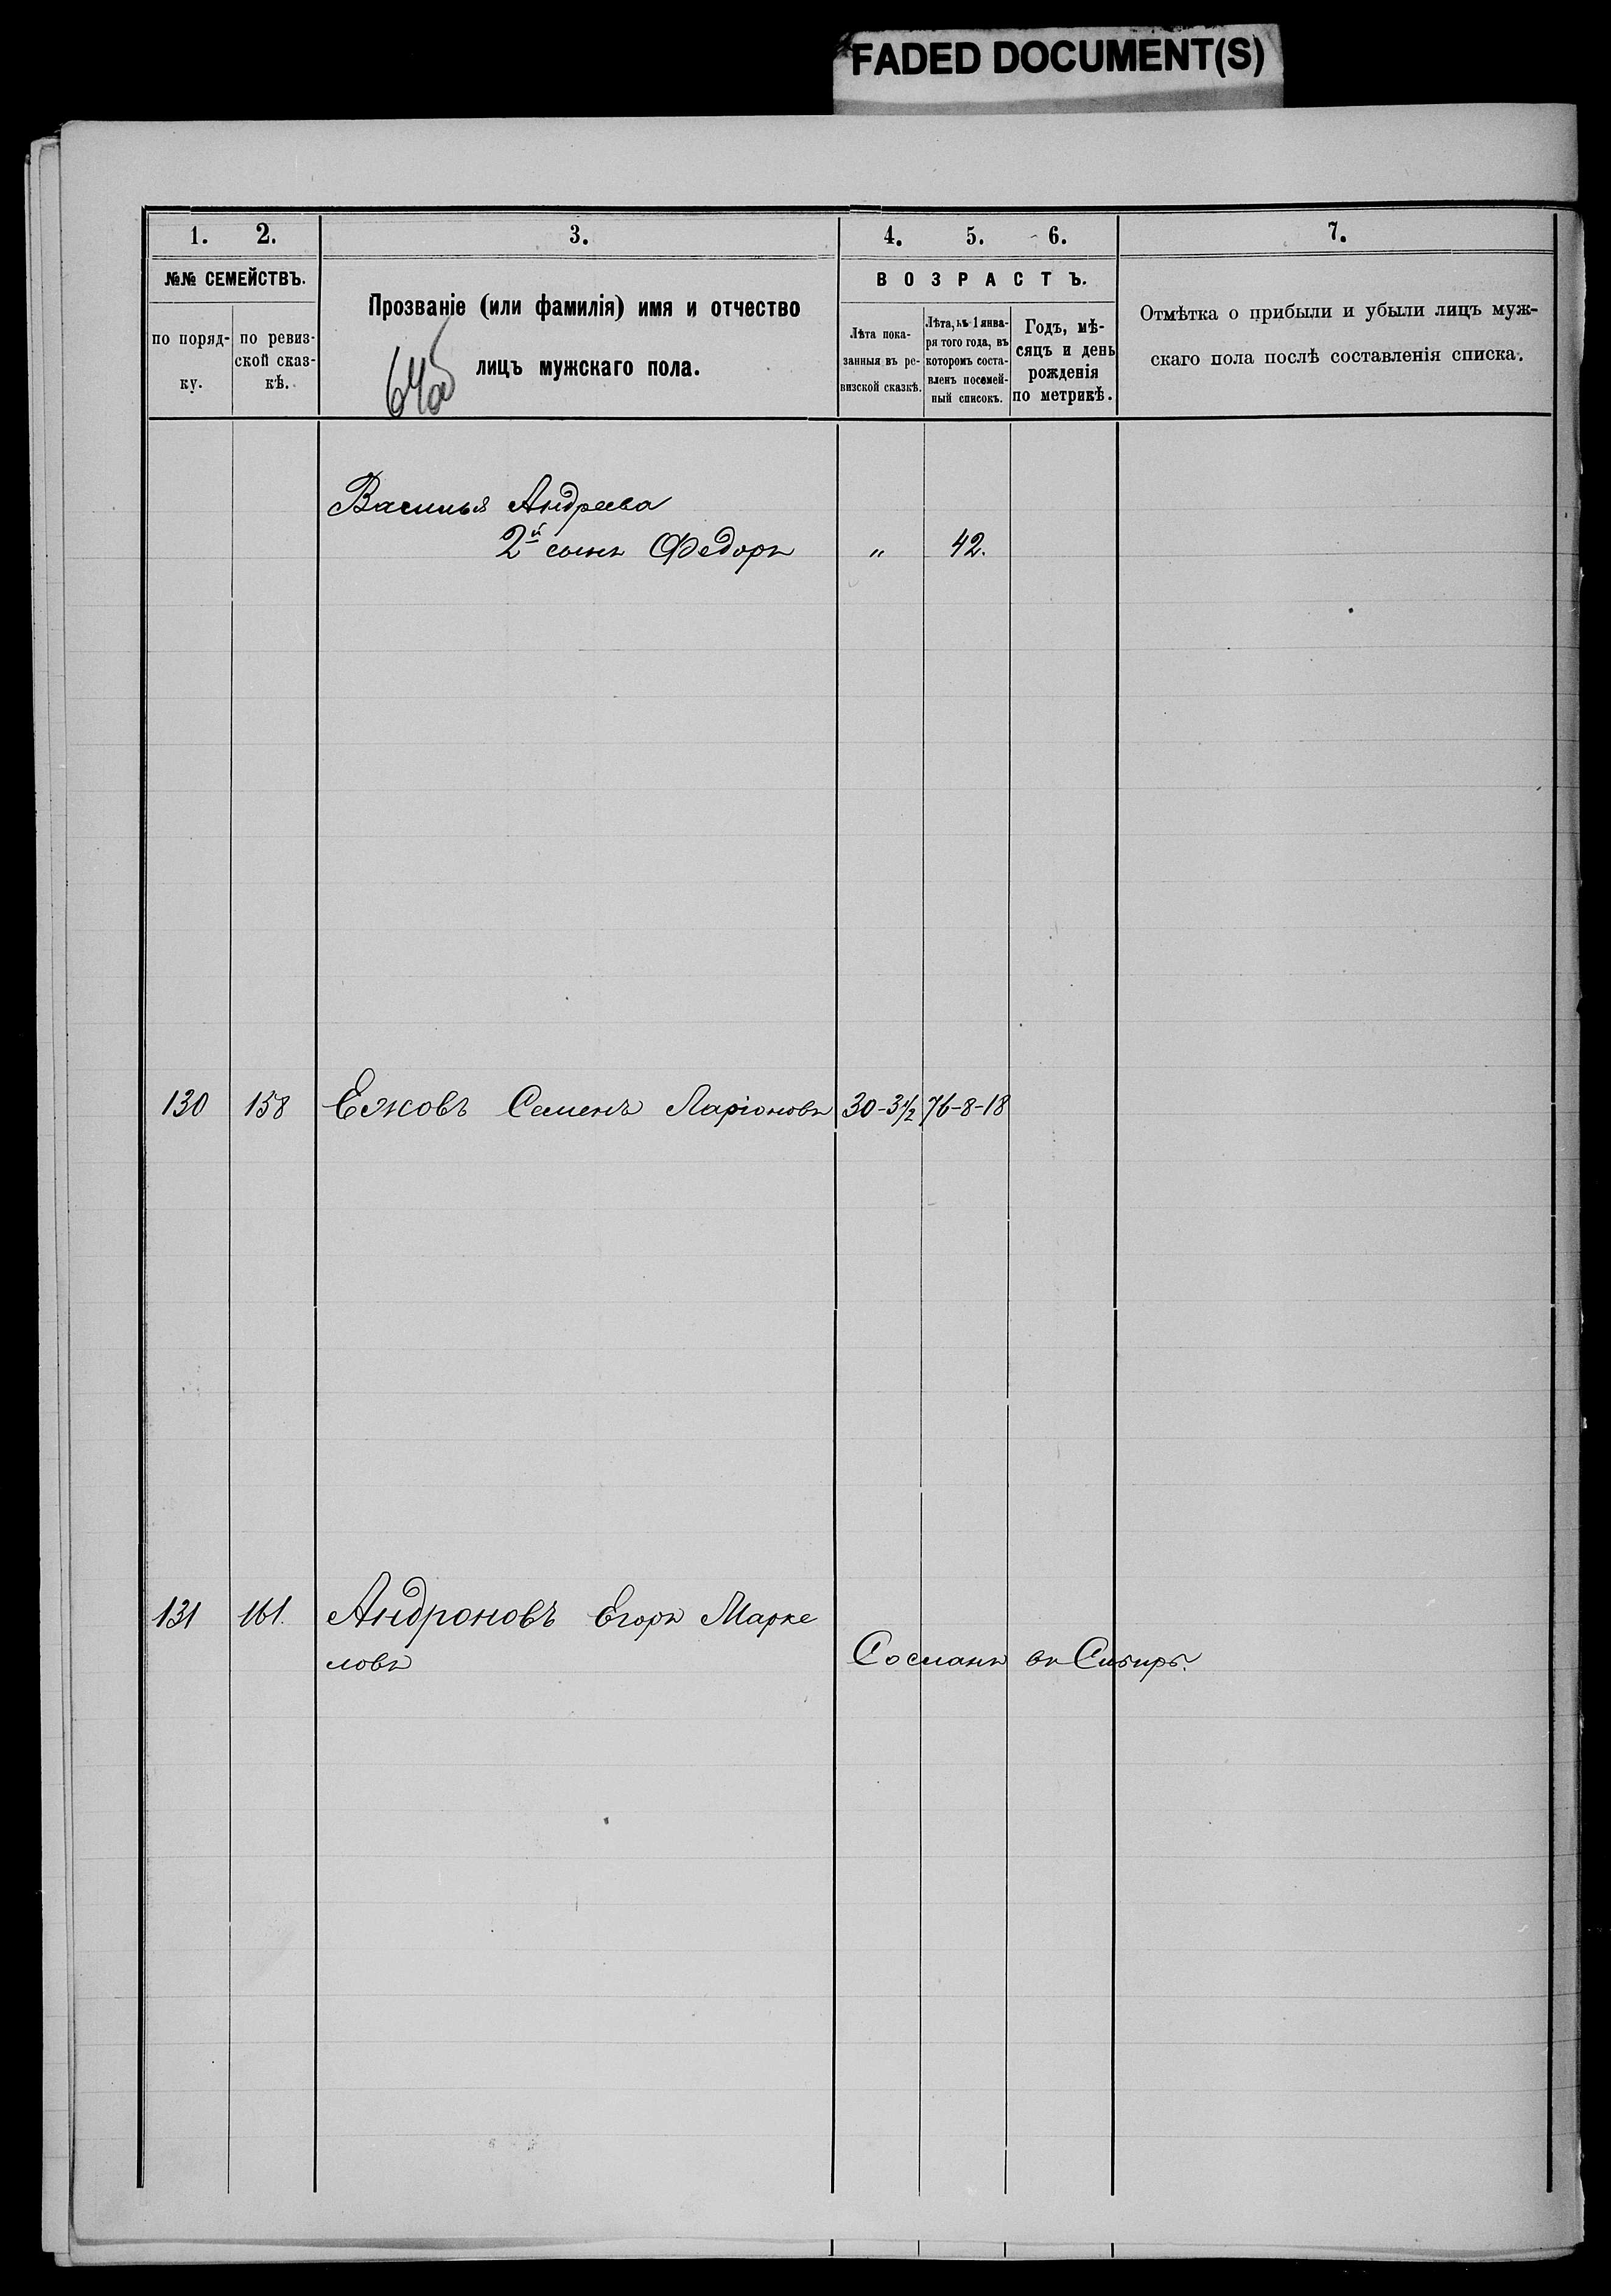 FADED DOCUMENT(S)
1. 2. 3. 4. 5. 6. 7.
№№ СЕМЕЙСТВЪ.
по поряд-
ку.
по ревиз-
ской сказ-
кѣ.
Прозваніе (или фамилія) имя и отчество
лицъ мужскаго пола.
ВОЗРАСТЪ.
Лѣта пока-
занныя въ ре-
визской сказкѣ.
Лѣта, къ 1 янва-
ря того года, въ
которомъ соста-
вленъ посемей-
ный списокъ.
Годъ, мѣ-
сяцъ и день
рожденія
по метрикѣ.
Отмѣтка о прибыли и убыли лицъ муж-
скаго пола послѣ составленія списка.
Василья Андреева
2й сынъ Федоръ " 42.
130 158 Ежовъ Семенъ Ларіоновъ 30-3½ 76-8-18
131 161. Андроновъ Егоръ Марке
ловъ Сосланъ въ Сибирь.